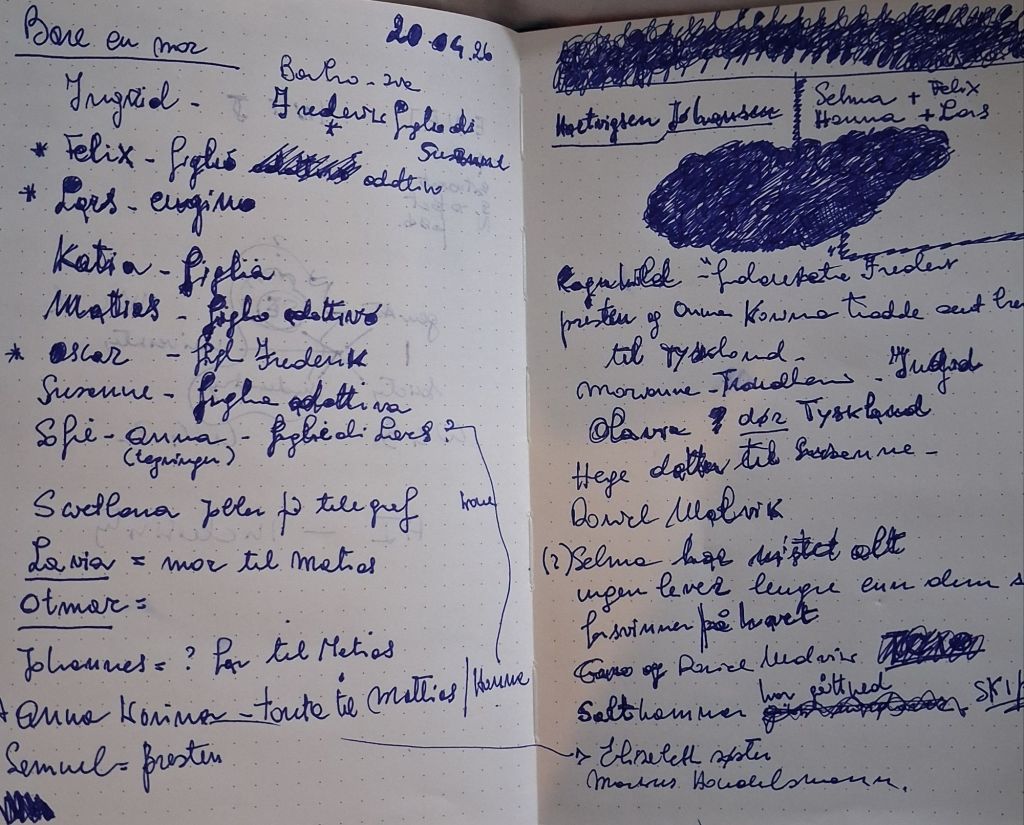 Bare en mor
20.04.26
Ingrid - Frederik figlio di
Susanne
* Felix - figlio adottivo
* Lars - cugino
Katia - figlia
Mattias - figlio adottivo
* Oscar - figl Frederik
Susanne - figlia adottiva
Sofie - Anna - figlie di Lars?
(tegninger)
Svetlana jobber på telegraf
kone
Lavia = mor til Matias
Otmar =
Johannes = ? far til Matias
Anna Korina - tante til Mattias / Hanna
Samuel = presten
Hartvigsen Johansen
Selma + Felix
Hanna + Lars
Ragnhild - Frederik
presten og Anna Korina
til Tyskland -
Marianne - Trondheim - Ingrid
Olavia ? dør Tyskland
Hege datter til Susanne -
Daniel Malvik
(?) Selma har mistet alt
ingen lever lengre enn dem
forsvinner på havet
og Daniel Malvik
Salthammer har gått ned SKIP
→ Elisabeth søster
Markus Handelsmann.